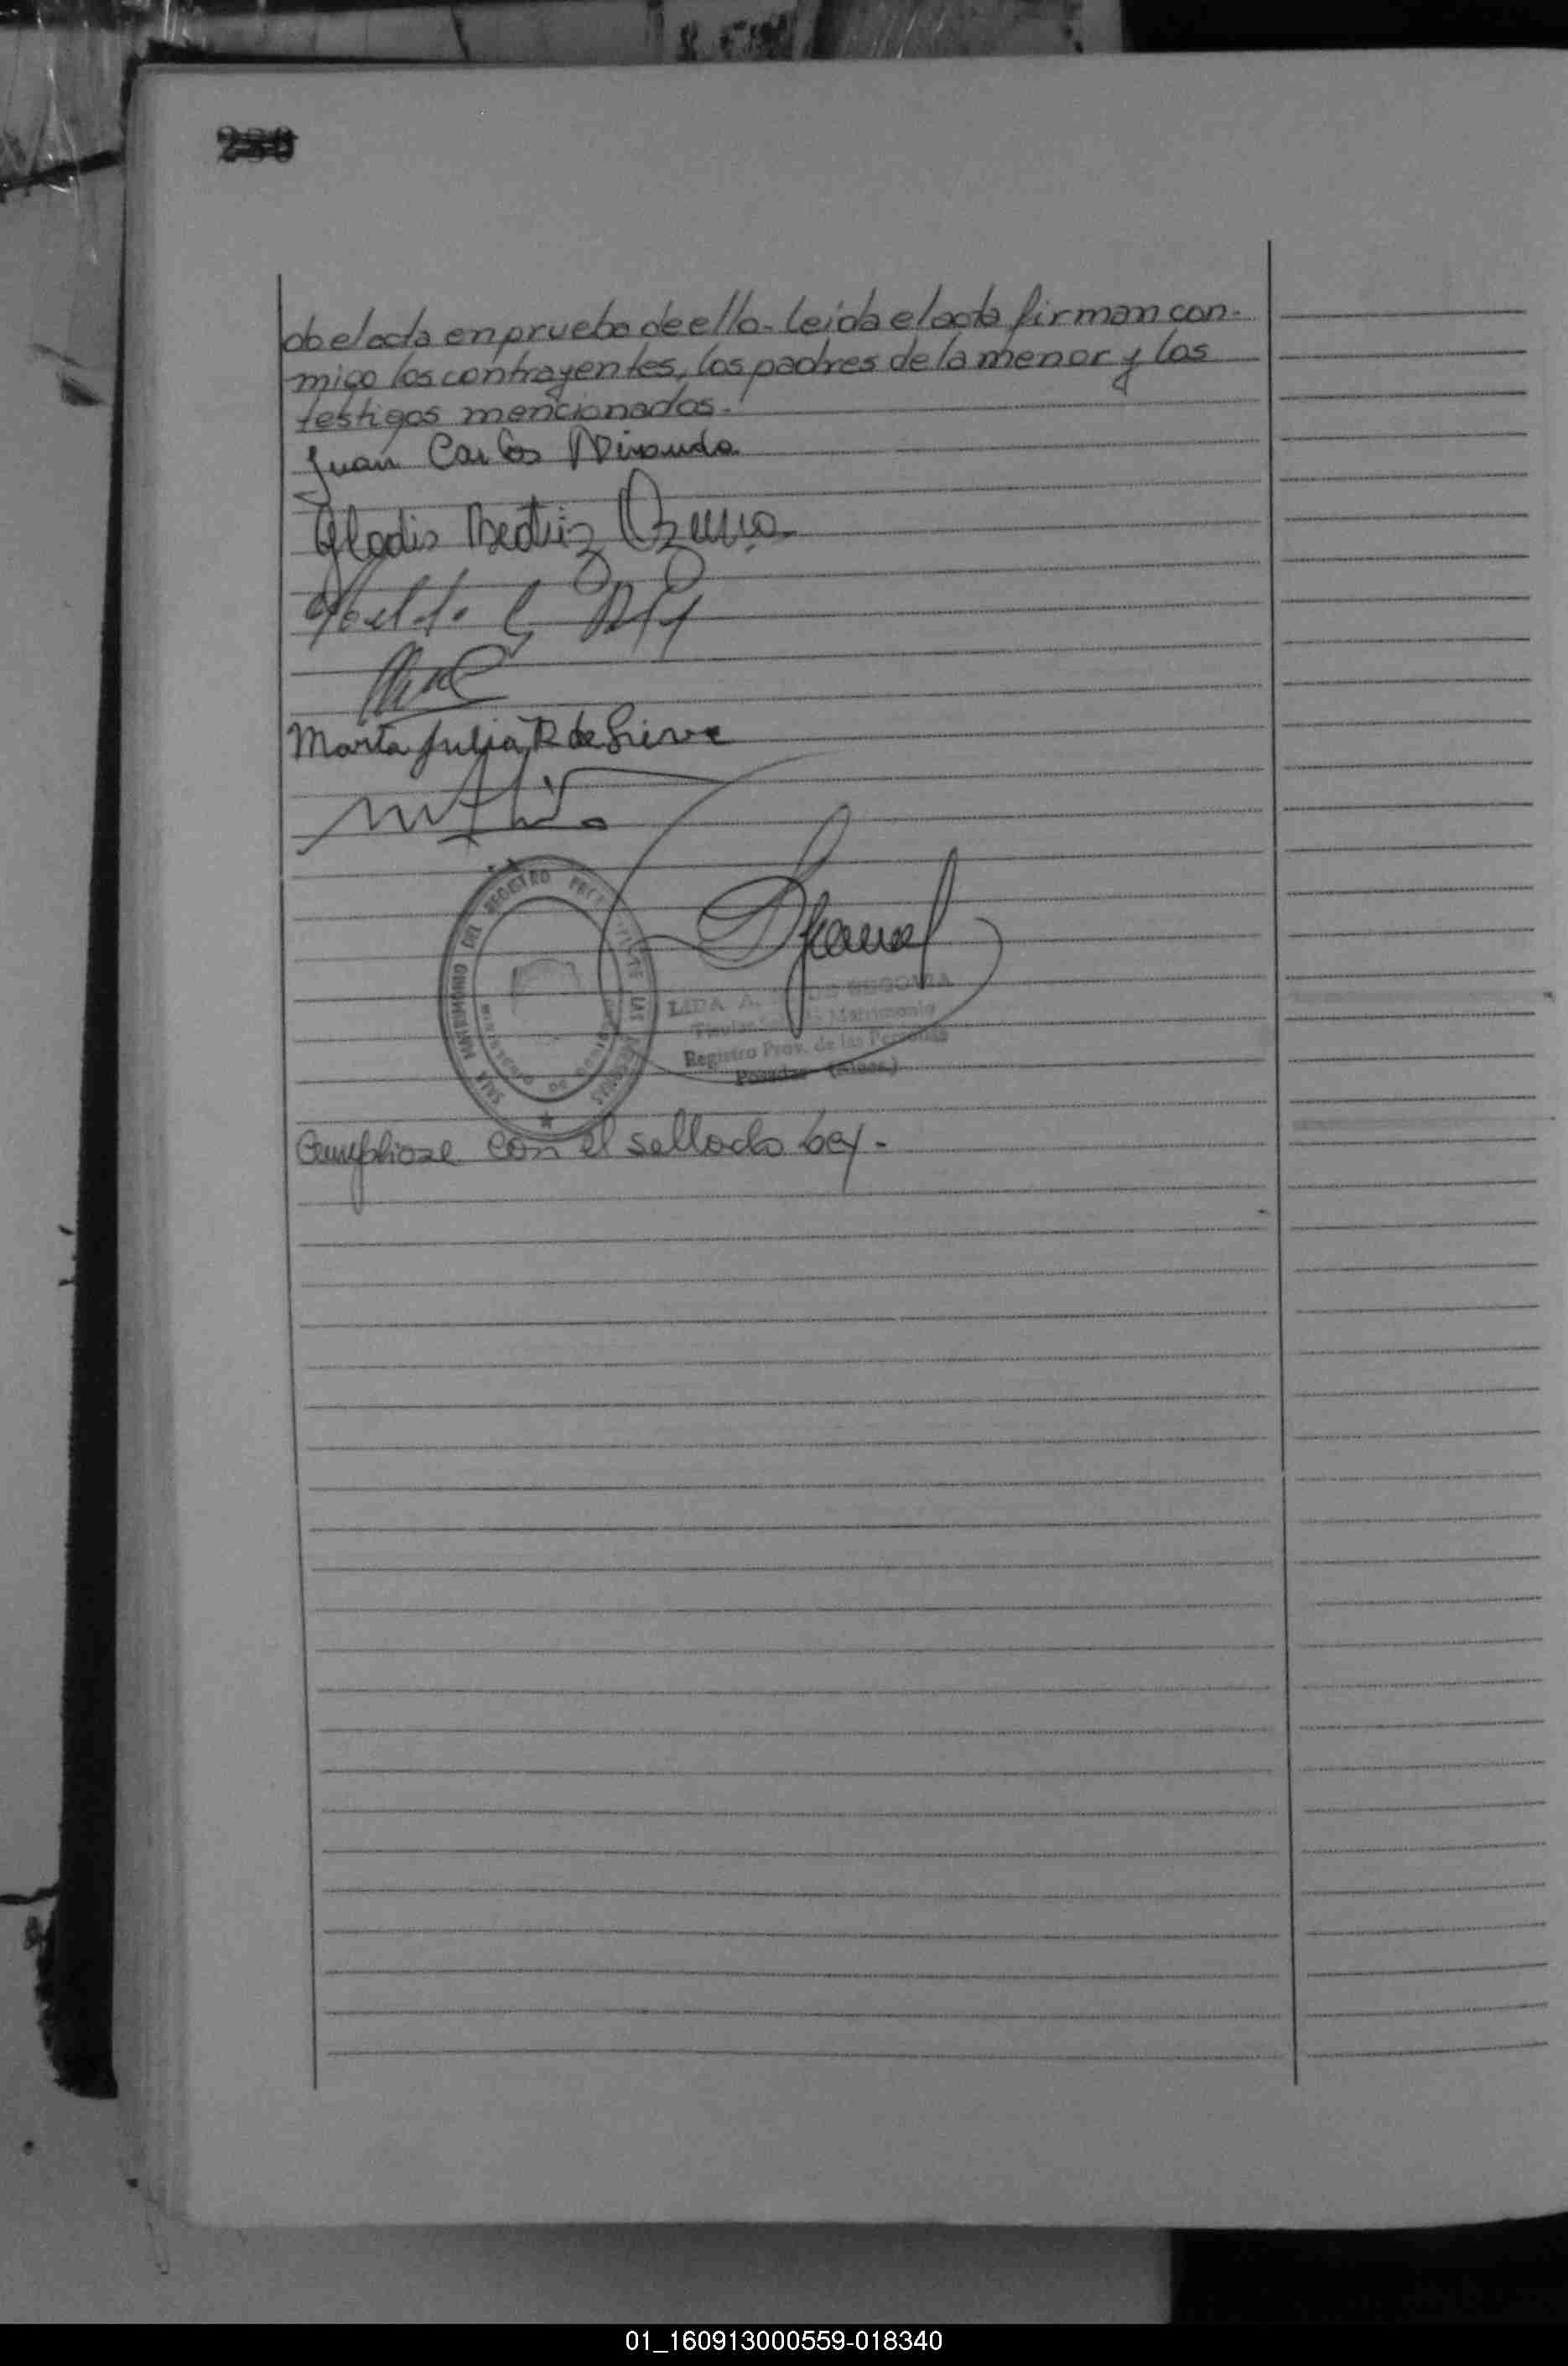 230
do el acta en prueba de ello. Leida el acta firman con-
migo los contrayentes, los padres de la menor y los
testigos mencionados.
Juan Carlos Miranda
Gladis Beatriz
Marta Julia R de
SALA MATRIMONIO DEL REGISTRO LAS PERSONAS
LIDA A. DE SEGOVIA
Titular Matrimonio
Registro Prov. de las Personas
Posadas (Mnes.)
Cumpliose con el sellado ley.-
01_160913000559-018340